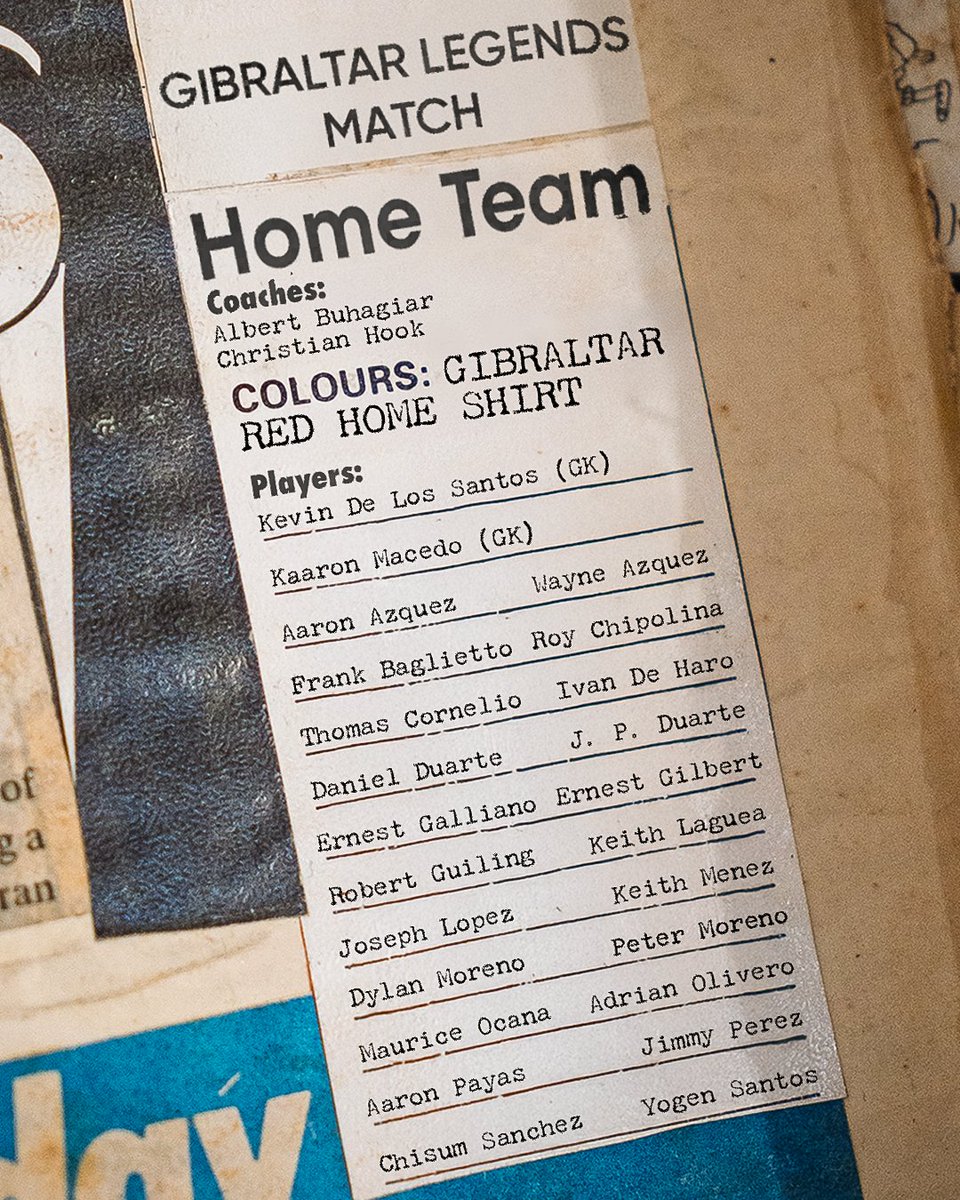 GIBRALTAR LEGENDS
MATCH
Home Team
Coaches:
Albert Buhagiar
Christian Hook
COLOURS: GIBRALTAR
RED HOME SHIRT
Players:
Kevin De Los Santos (GK)
Kaaron Macedo (GK)
Aaron Azquez Wayne Azquez
Frank Baglietto Roy Chipolina
Thomas Cornelio Ivan De Haro
Daniel Duarte J. P. Duarte
Ernest Galliano Ernest Gilbert
Robert Guiling Keith Laguea
Joseph Lopez Keith Menez
Dylan Moreno Peter Moreno
Maurice Ocana Adrian Olivero
Aaron Payas Jimmy Perez
Chisum Sanchez Yogen Santos
of
g a
ran
day